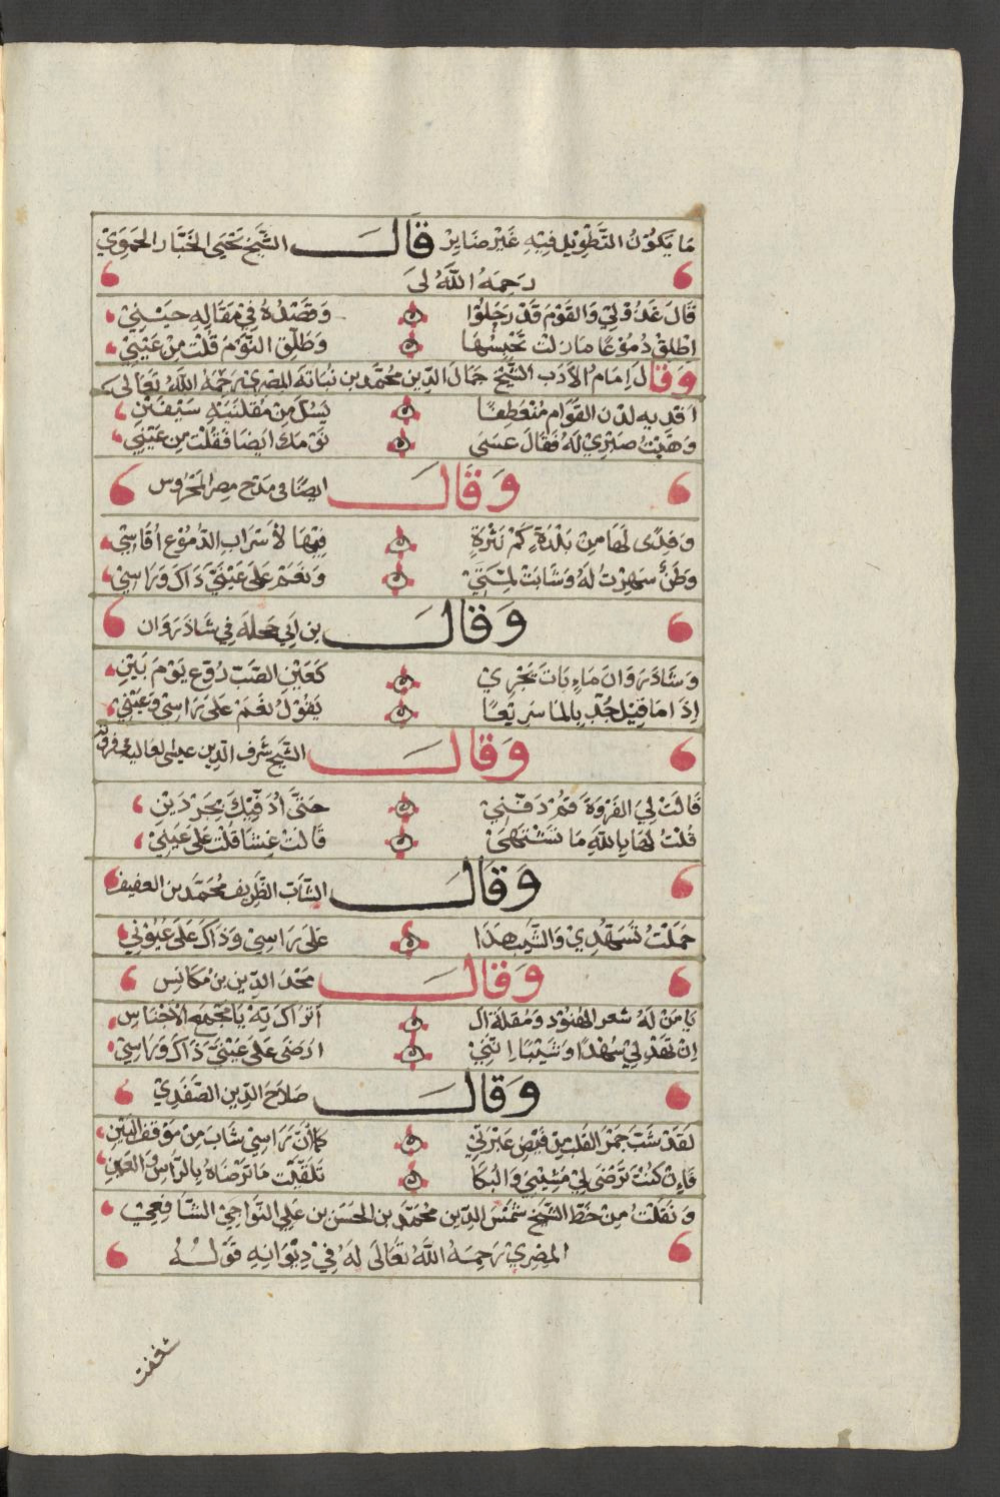 ما يكون التطويل فيه غير ضاير قال الشيخ يحيى الخباز الحموي
رحمه الله لى
قال عذولي والقوم قد رحلوا وقصده في مقاله حيني
اطلق دموعا مازلت تحبسها وطلق النوم قلت من عيني
وقال امام الادب الشيخ جمال الدين محمد بن نباتة المصري رحمه الله تعالى
افديه لدن القوام منعطفا يسل من مقلتيه سيفين
وهبت صبري له فقال عسى نومك ايضا فقلت من عيني
وقال ايضا في مدح مصر المحروس
وفدى لها من بلدة كم نثرة فيها لأسراب الدموع اقاسي
وطن سهرت له وشابت لمتي ونعم على عيني ذاك وراسي
وقال بن ابي حجلة في شاذروان
وشاذروان ماء بات يجري كعين الصب روع يوم بين
اذا ما قيل جد بالما سريعا يقول نعم على راسي وعيني
وقال الشيخ شرف الدين عيسى العالية في فروة
قالت لي الفروة قم دفني حتى أدفيك بجردين
قلت لها بالله ما تشتهي قالت غشا قلت على عيني
وقال الشاب الظريف محمد بن العفيف
حملت تسهدي والشيب هذا على راسي وذاك على عيوني
وقال مجد الدين بن مكانس
يا من له شعر الهنود ومقلة ال اتراك ته يا مجمع الاجناس
ان تهد لي سهدا وشيبا انني ارضى على عيني ذاك وراسي
وقال صلاح الدين الصفدي
لقد شب جمر القلب من فيض عبرتي كما أن راسي شاب من موقف البين
فان كنت ترضى لي مشيبي والبكا تلقيت ما ترضاه بالراس والعين
ونقلت من خط الشيخ شمس الدين محمد بن الحسن بن علي النواجي الشافعي
المصري رحمه الله تعالى له في ديوانه قوله
شففت